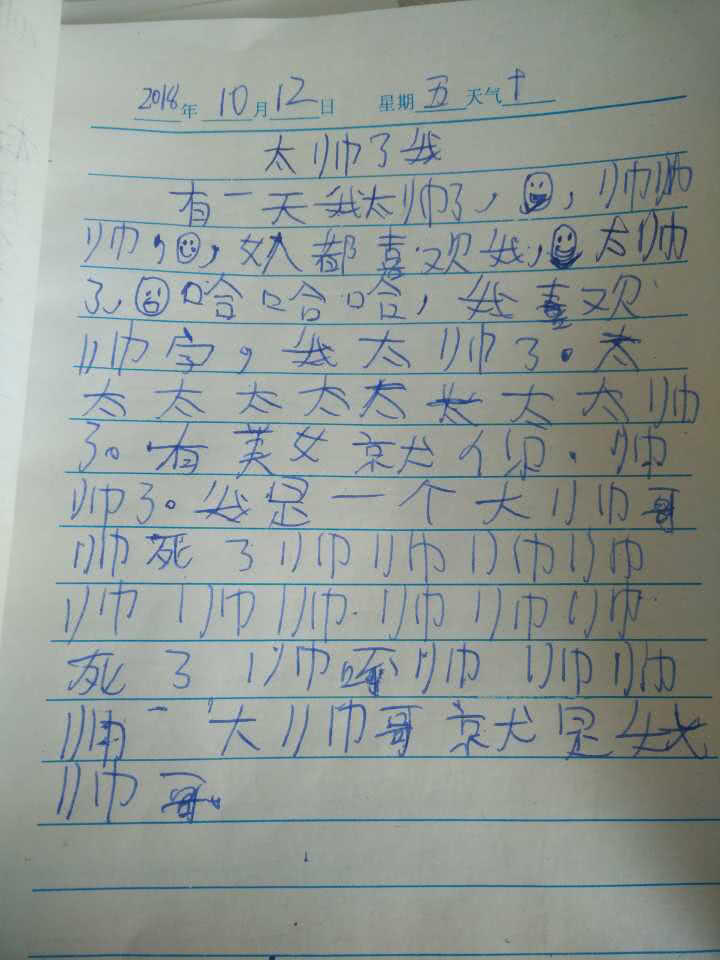 2018年 10月12日 星期五天气
太帅了我
有一天我太帅了，，帅帅
帅，，都喜欢我，太帅
了，哈哈哈，我喜欢
帅字，我太帅了。太
太太太太太太太太帅
了。有美女就 帅
帅了。我是一个大帅哥
帅死了帅帅帅帅
帅帅帅帅帅帅
死了帅呀帅帅帅
帅一大帅哥就是我
帅哥